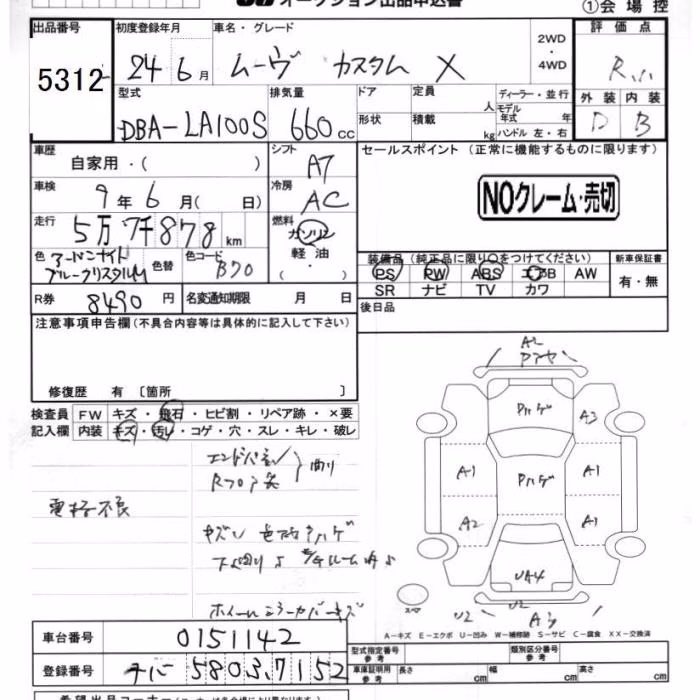 オークション出品申込書
①会場控
出品番号 初度登録年月 車名・グレード 評価点
5312 24 6月 ムーヴ カスタム X 2WD・4WD R
型式 排気量 ドア 定員 ディーラー・並行 外装 内装
DBA-LA100S 660cc 形状 積載 人 kg モデル年式 年 ハンドル 左・右 D B
車歴 シフト セールスポイント (正常に機能するものに限ります)
自家用・( ) AT
車検 冷房
9年6月( 日) AC NOクレーム・売切
走行 燃料
5万7千878km ガソリン 軽油 ( ・ )
色 色替 色コード B70 装備品(純正品に限り○をつけてください) 新車保証書
ブルークリスタルM
PS PW ABS エアB AW 有・無
SR ナビ TV カワ
R券 8490円 名変通知期限 月 日 後日品
注意事項申告欄(不具合内容等は具体的に記入して下さい)
修復歴 有 〔箇所 〕
検査員 FW キズ・飛石・ヒビ割・リペア跡・×要
記入欄 内装 キズ・汚レ・コゲ・穴・スレ・キレ・破レ
エンドパネル
Rフロア
曲り
キズ
下廻り
ホイールミラーカバーキズ
A3
A1 A1
A2 A1
UA4
スペア
U2 U2 A3
A-キズ E-エクボ U-凹み W-補修跡 S-サビ C-腐食 XX-交換済
車台番号 0151142
登録番号 チバ 580 ス 7152
型式指定番号 参考 類別区分番号 参考
車庫証明用 参考 長さ cm 幅 cm 高さ cm